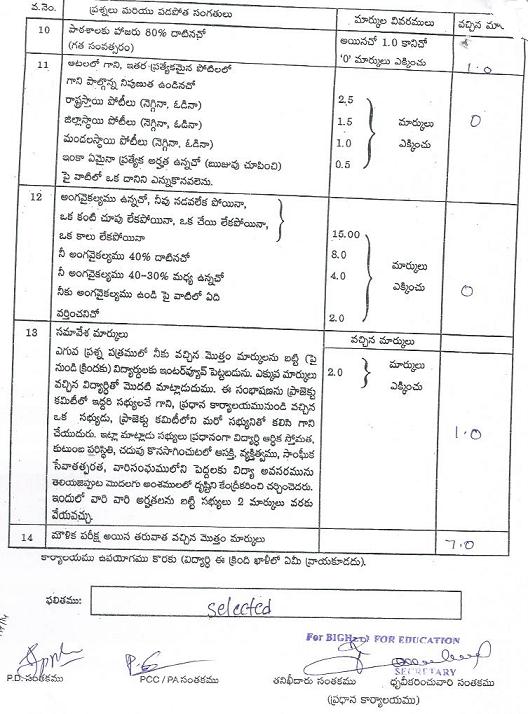 వ.నెం. ప్రశ్నలు మరియు పడపోత సంగతులు మార్కుల వివరములు వచ్చిన మా.
10 పాఠశాలకు హాజరు 80% దాటినచో అయినచో 1.0 కానిచో
(గత సంవత్సరం) '0' మార్కులు ఎక్కించు 1.0
11 ఆటలలో గాని, ఇతర ప్రత్యేకమైన పోటీలలో
గాని పాల్గొన్న నిపుణుత ఉండినచో
రాష్ట్రస్తాయి పోటీలు (నెగ్గినా, ఓడినా) 2.5 మార్కులు 0
జిల్లాస్థాయి పోటీలు (నెగ్గినా, ఓడినా) 1.5
మండలస్థాయి పోటీలు (నెగ్గినా, ఓడినా) 1.0 ఎక్కించు
ఇంకా ఏమైనా ప్రత్యేక అర్హత ఉన్నచో (ఋజువు చూపించి) 0.5
పై వాటిలో ఒక దానిని ఎన్నుకొనవలెను.
12 అంగవైకల్యము ఉన్నచో, నీవు నడవలేక పోయినా,
ఒక కంటి చూపు లేకపోయినా, ఒక చేయి లేకపోయినా,
ఒక కాలు లేకపోయినా 15.00
నీ అంగవైకల్యము 40% దాటినచో 8.0 మార్కులు
నీ అంగవైకల్యము 40-30% మధ్య ఉన్నచో 4.0
నీకు అంగవైకల్యము ఉండి పై వాటిలో ఏది ఎక్కించు 0
వర్తించనిచో 2.0
13 సమావేశ మార్కులు వచ్చిన మార్కులు
ఎగువ ప్రశ్న పత్రములో నీకు వచ్చిన మొత్తం మార్కులను బట్టి (పై 2.0 మార్కులు
నుండి క్రిందకు) విద్యార్థులకు ఇంటర్వ్యూవ్ పెట్టబడును. ఎక్కువ మార్కులు ఎక్కించు
వచ్చిన విద్యార్థితో మొదటి మాట్లాడుదుము. ఈ సంభాషణను ప్రాజెక్టు
కమిటీలో ఇద్దరి సభ్యులచే గాని, ప్రధాన కార్యాలయమునుండి వచ్చిన
ఒక సభ్యుడు, ప్రాజెక్టు కమిటీలోని మరో సభ్యునితో కలిసి గాని 1.0
చేయుదురు. ఇట్లా మాట్లాడు సభ్యులు ప్రధానంగా విద్యార్థి ఆర్థిక స్తోమత,
కుటుంబ పరిస్థితి, చదువు కొనసాగించుటలో ఆసక్తి, వ్యక్తిత్వము, సాంఘీక
సేవాతత్పరత, వారిసంఘములోని పెద్దలకు విద్యా అవసరమును
తెలియజెప్పుట మొదలగు అంశములలో దృష్టిని కేంద్రీకరించి చర్చించెదరు.
ఇందులో వారి వారి అర్హతలను బట్టి సభ్యులు 2 మార్కులు వరకు
వేయవచ్చు.
14 మౌళిక పరీక్ష అయిన తరువాత వచ్చిన మొత్తం మార్కులు 7.0
కార్యాలయము ఉపయోగము కొరకు (విద్యార్థి ఈ క్రింది ఖాళీలో ఏమీ వ్రాయకూడదు).
ఫలితము: selected
FOR EDUCATION
SECRETARY
P.D. సంతకము PCC / PA సంతకము తనిఖీదారు సంతకము ధృవీకరించువారి సంతకము
(ప్రధాన కార్యాలయము)